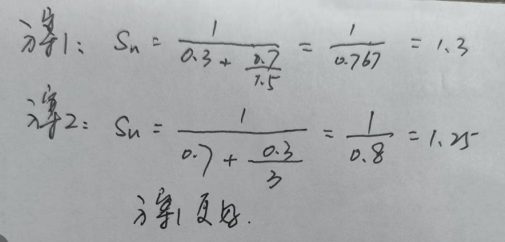 方案1: Sn = 1 / (0.3 + 0.7/1.5) = 1/0.767 = 1.3
方案2: Sn = 1 / (0.7 + 0.3/3) = 1/0.8 = 1.25
方案1更好.